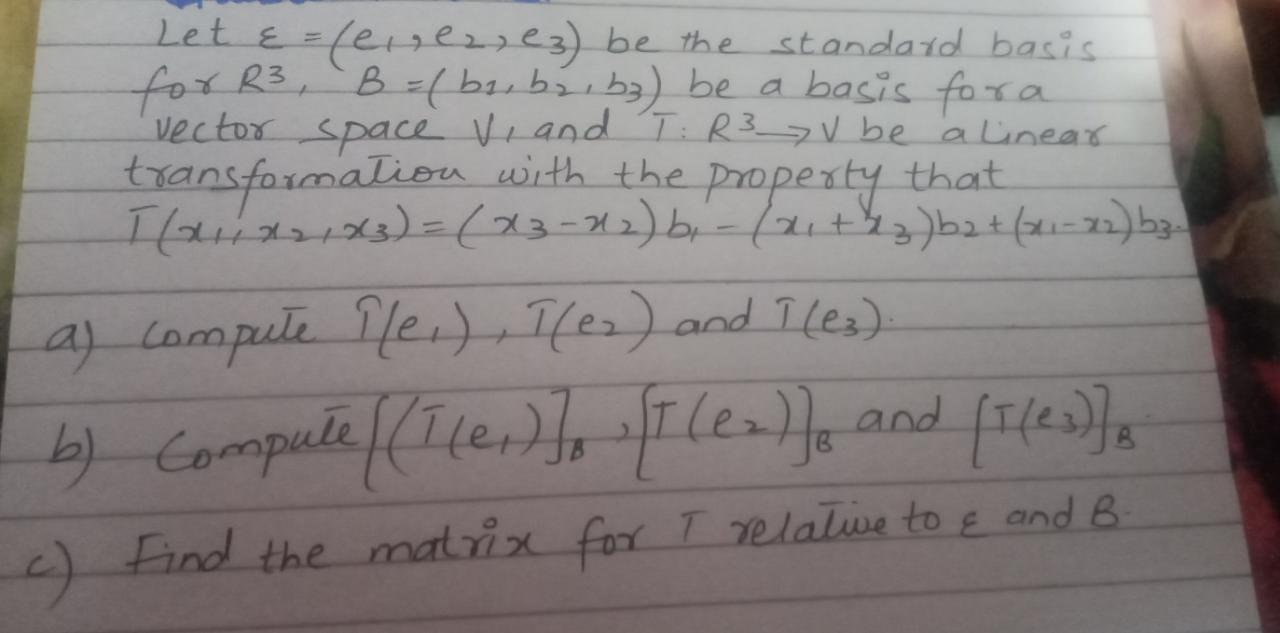 Let ε = (e1, e2, e3) be the standard basis
for R3, B = ( b1, b2, b3) be a basis for a
vector space V, and T: R3 → V be a linear
transformation with the property that
T(x1, x2, x3) = ( x3 - x2) b1 - (x1 + x3)b2 + (x1 - x2) b3.
a) compute T(e1), T(e2) and T(e3).
b) Compute [(T(e1)]B, [T(e2)]B and [T(e3)]B
c) Find the matrix for T relative to ε and B.